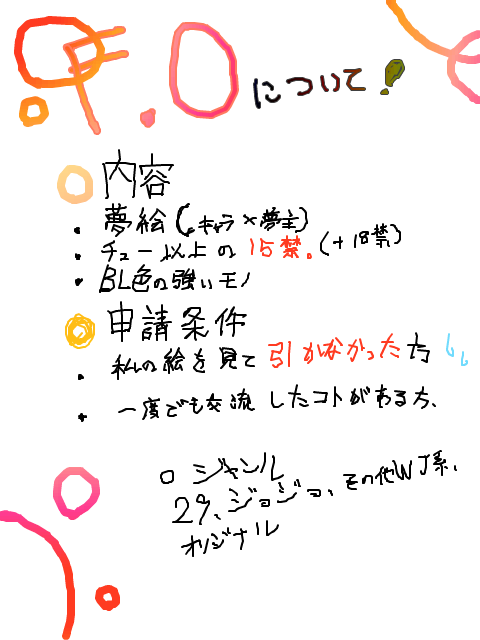 F.Oについて!
内容
・夢絵(キャラ×夢主)
・チュー以上の15禁。(+18禁)
・BL色の強いモノ
申請条件
・私の絵を見て引かなかった方
・一度でも交流したコトがある方、
ジャンル
29、ジョジョ、その他WJ系、
オリジナル